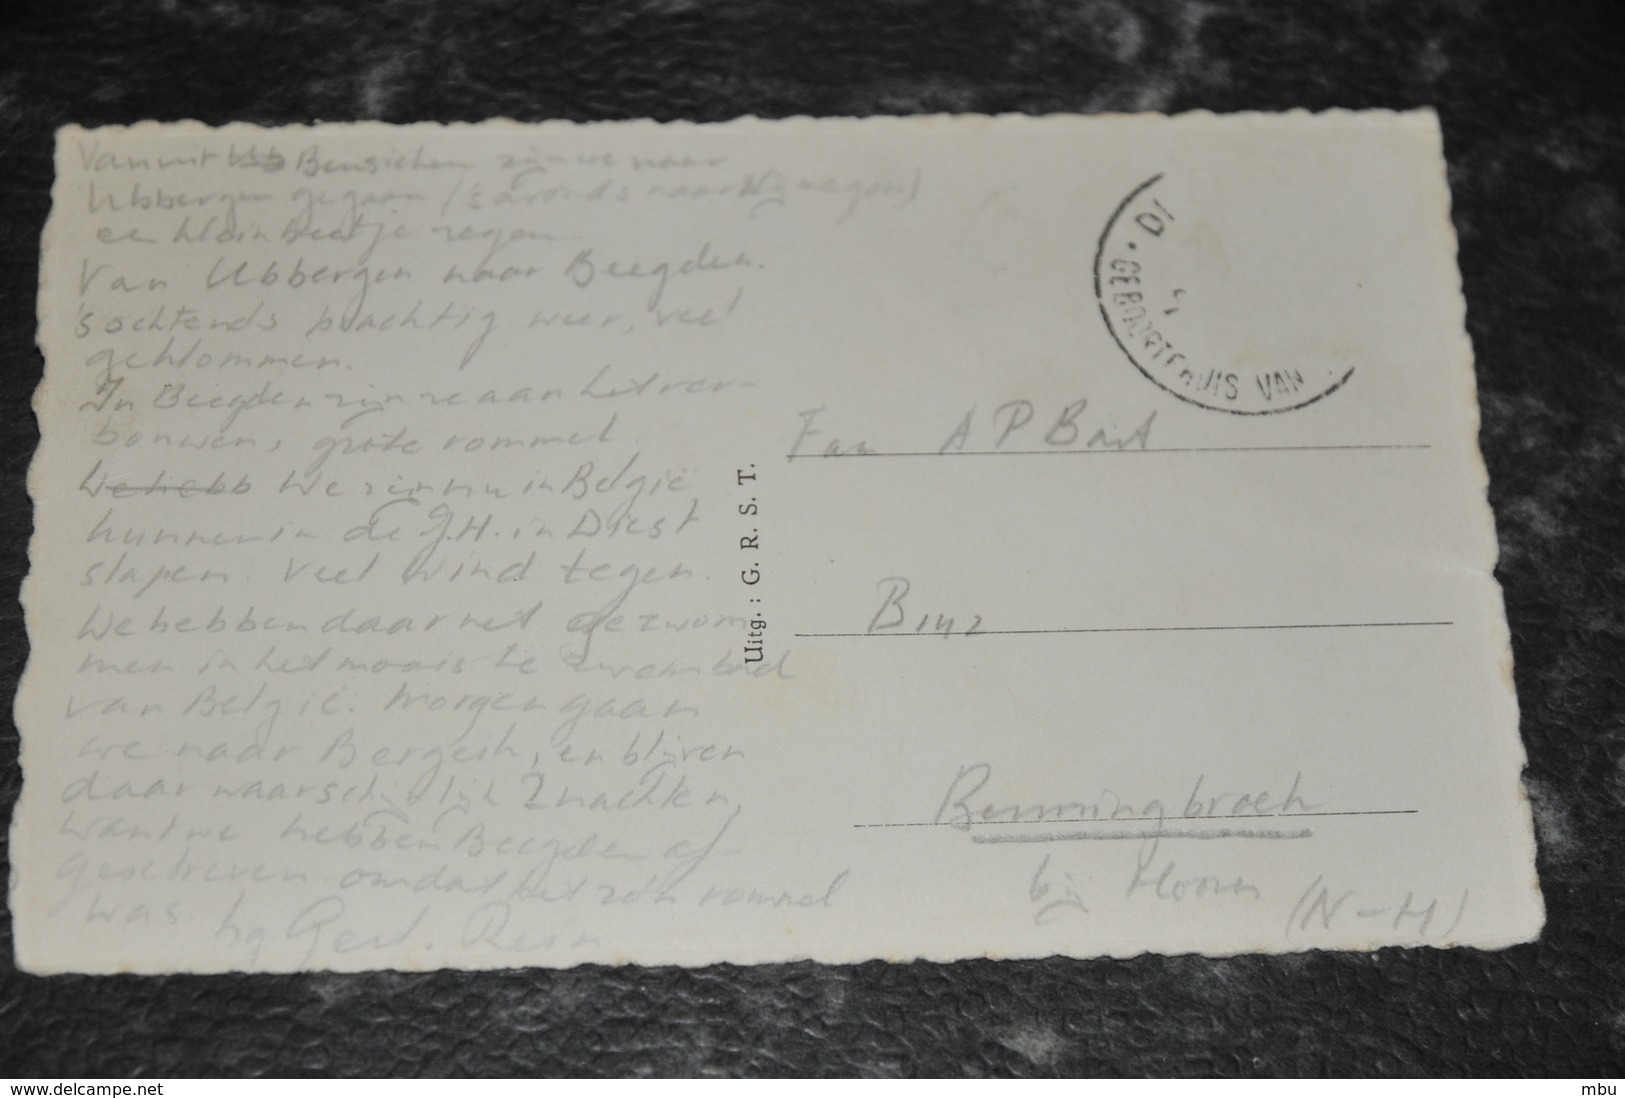 Vanuit Bennichem zijn we naar
Ubbergen gegaan ('s avonds naar Nijmegen)
een klein beetje regen
Van Ubbergen naar Beegden.
's ochtends prachtig weer, veel
geklommen.
In Beegden zijn ze aan het ver-
bouwen, grote rommel.
We hebb We zijn nu in België
kunnen in de J.H. in Diest
slapen. Veel wind tegen.
We hebben daarnet gezwom
men in het mooiste zwembad
van België. Morgen gaan
we naar Bergeik, en blijven
daar waarschijnlijk 2 nachten,
want we hebben Beegden af-
geschreven omdat het zo'n rommel
was. hg Gert. Rein
Uitg.: G. R. S. T.
DI
• GEBOORTEHUIS VAN
Fam A P
B
Benningbroek
bij Hoorn (N-H)
www.delcampe.net
mbu